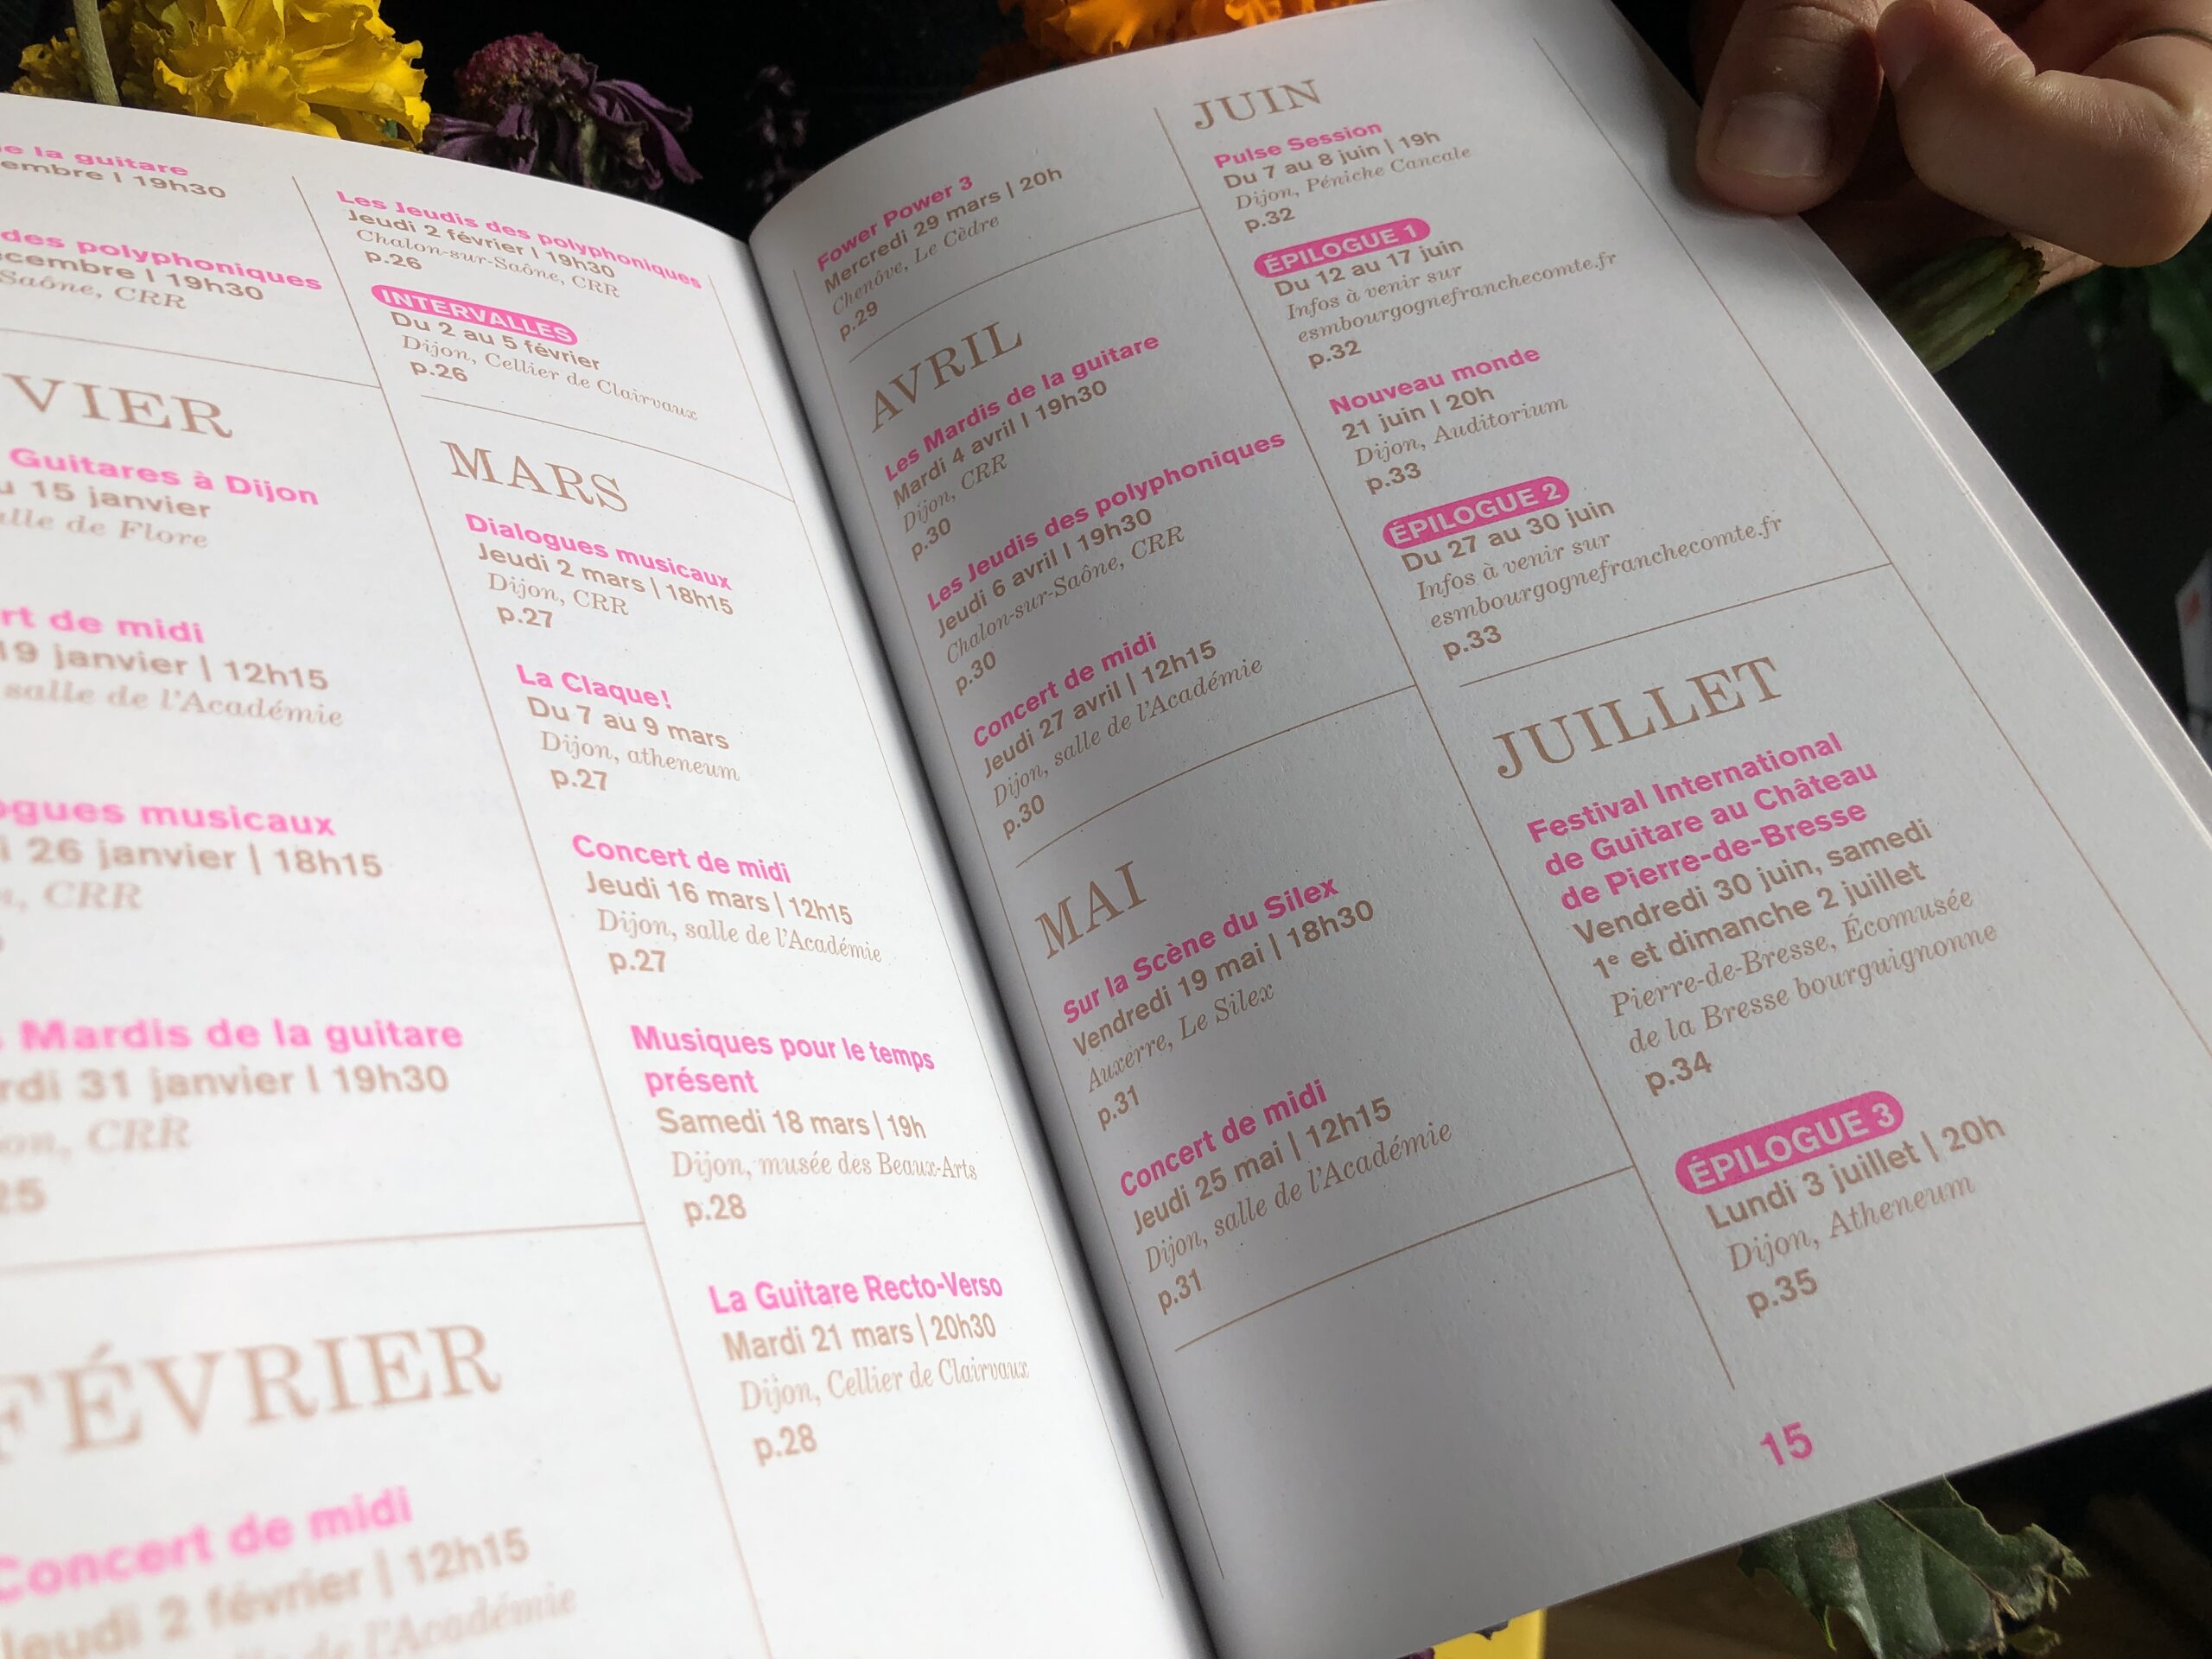 de la guitare
19h30
des polyphoniques
19h30
Saône, CRR
VIER
Guitares à Dijon
15 janvier
de Flore
de midi
19 janvier | 12h15
salle de l'Académie
musicaux
26 janvier | 18h15
CRR
Mardis de la guitare
31 janvier | 19h30
CRR
25
FÉVRIER
Concert de midi
Jeudi 2 février | 12h15
de l'Académie
Les Jeudis des polyphoniques
Jeudi 2 février | 19h30
Chalon-sur-Saône, CRR
p.26
INTERVALLES
Du 2 au 5 février
Dijon, Cellier de Clairvaux
p.26
MARS
Dialogues musicaux
Jeudi 2 mars | 18h15
Dijon, CRR
p.27
La Claque!
Du 7 au 9 mars
Dijon, atheneum
p.27
Concert de midi
Jeudi 16 mars | 12h15
Dijon, salle de l'Académie
p.27
Musiques pour le temps
présent
Samedi 18 mars | 19h
Dijon, musée des Beaux-Arts
p.28
La Guitare Recto-Verso
Mardi 21 mars | 20h30
Dijon, Cellier de Clairvaux
p.28
Fower Power 3
Mercredi 29 mars | 20h
Chenôve, Le Cèdre
p.29
AVRIL
Les Mardis de la guitare
Mardi 4 avril | 19h30
Dijon, CRR
p.30
Les Jeudis des polyphoniques
Jeudi 6 avril | 19h30
Chalon-sur-Saône, CRR
p.30
Concert de midi
Jeudi 27 avril | 12h15
Dijon, salle de l'Académie
p.30
MAI
Sur la Scène du Silex
Vendredi 19 mai | 18h30
Auxerre, Le Silex
p.31
Concert de midi
Jeudi 25 mai | 12h15
Dijon, salle de l'Académie
p.31
JUIN
Pulse Session
Du 7 au 8 juin | 19h
Dijon, Péniche Cancale
p.32
ÉPILOGUE 1
Du 12 au 17 juin
Infos à venir sur
esmbourgognefranchecomte.fr
p.32
Nouveau monde
21 juin | 20h
Dijon, Auditorium
p.33
ÉPILOGUE 2
Du 27 au 30 juin
Infos à venir sur
esmbourgognefranchecomte.fr
p.33
JUILLET
Festival International
de Guitare au Château
de Pierre-de-Bresse
Vendredi 30 juin, samedi
1e et dimanche 2 juillet
Pierre-de-Bresse, Écomusée
de la Bresse bourguignonne
p.34
ÉPILOGUE 3
Lundi 3 juillet | 20h
Dijon, Atheneum
p.35
15